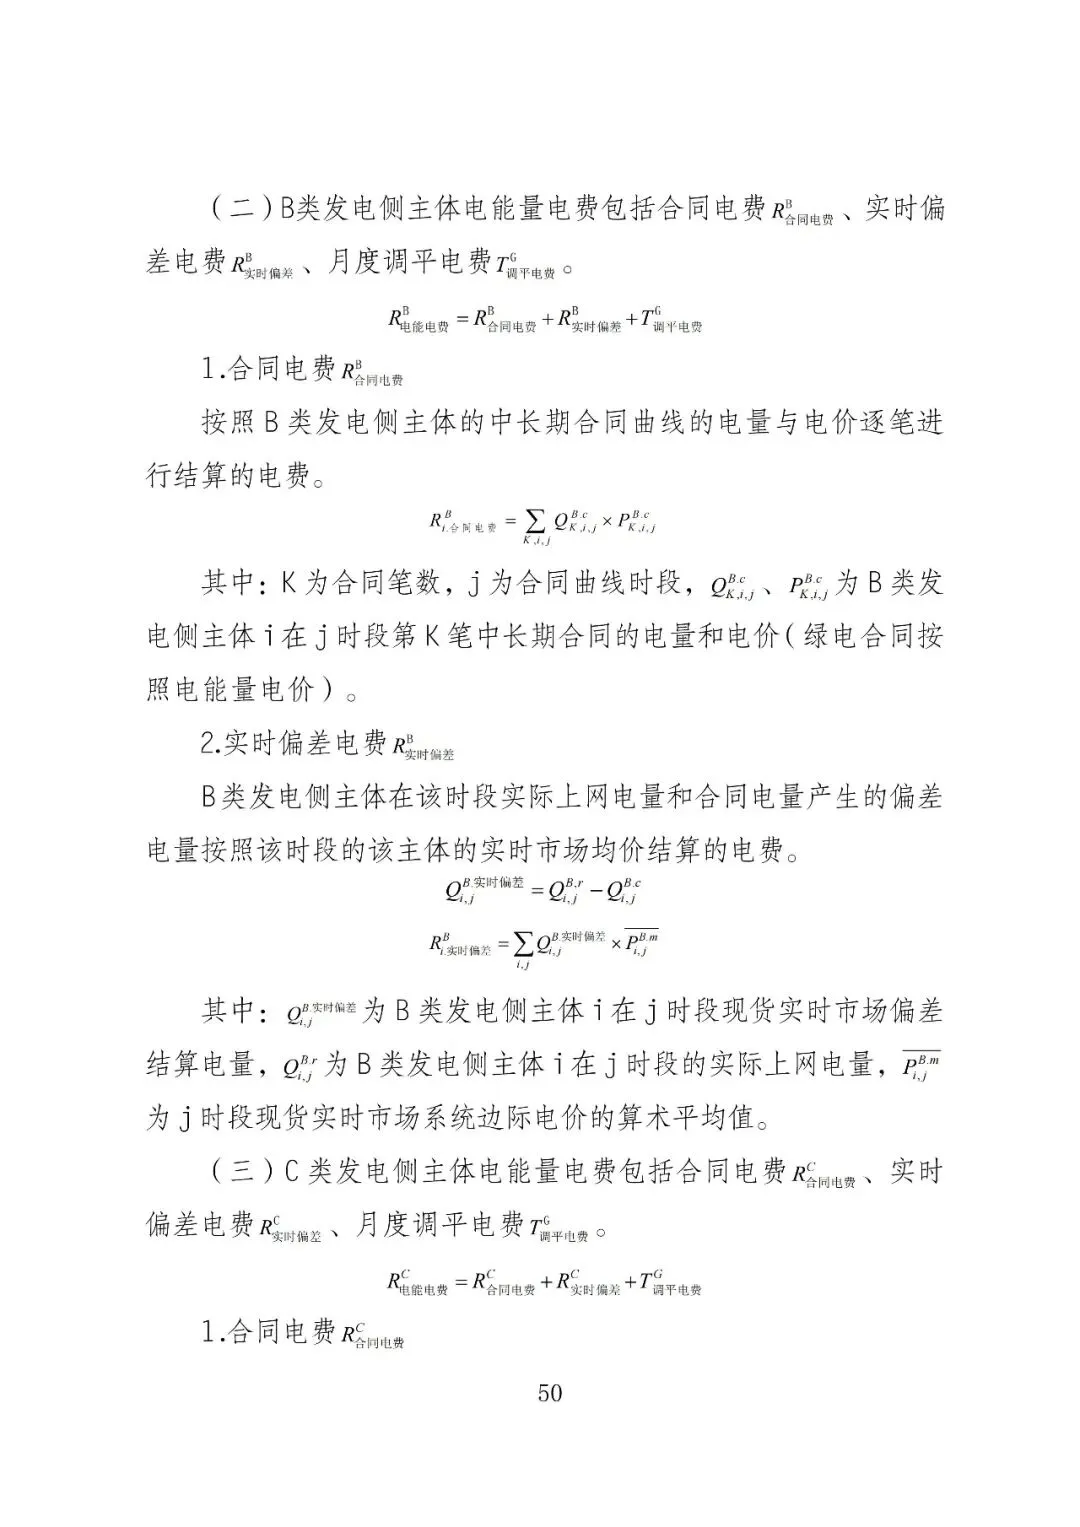 （二）B类发电侧主体电能量电费包括合同电费 $R^{\text{B}}_{\text{合同电费}}$ 、实时偏
差电费 $R^{\text{B}}_{\text{实时偏差}}$ 、月度调平电费 $T^{\text{G}}_{\text{调平电费}}$ 。
$R^{\text{B}}_{\text{电能电费}} = R^{\text{B}}_{\text{合同电费}} + R^{\text{B}}_{\text{实时偏差}} + T^{\text{G}}_{\text{调平电费}}$
1.合同电费 $R^{\text{B}}_{\text{合同电费}}$
按照 B 类发电侧主体的中长期合同曲线的电量与电价逐笔进
行结算的电费。
$R^{B}_{i.\text{合同电费}} = \sum_{K,i,j} Q^{B.c}_{K,i,j} \times P^{B.c}_{K,i,j}$
其中：K 为合同笔数，j 为合同曲线时段， $Q^{B.c}_{K,i,j}$ 、 $P^{B.c}_{K,i,j}$ 为 B 类发
电侧主体 i 在 j 时段第 K 笔中长期合同的电量和电价（绿电合同按
照电能量电价）。
2.实时偏差电费 $R^{\text{B}}_{\text{实时偏差}}$
B类发电侧主体在该时段实际上网电量和合同电量产生的偏差
电量按照该时段的该主体的实时市场均价结算的电费。
$Q^{B.\text{实时偏差}}_{i,j} = Q^{B,r}_{i,j} - Q^{B.c}_{i,j}$
$R^{B}_{i.\text{实时偏差}} = \sum_{i,j} Q^{B.\text{实时偏差}}_{i,j} \times \overline{P^{B.m}_{i,j}}$
其中： $Q^{B.\text{实时偏差}}_{i,j}$ 为 B 类发电侧主体 i 在 j 时段现货实时市场偏差
结算电量， $Q^{B.r}_{i,j}$ 为 B 类发电侧主体 i 在 j 时段的实际上网电量， $\overline{P^{B.m}_{i,j}}$
为 j 时段现货实时市场系统边际电价的算术平均值。
（三）C 类发电侧主体电能量电费包括合同电费 $R^{C}_{\text{合同电费}}$ 、实时
偏差电费 $R^{\text{C}}_{\text{实时偏差}}$ 、月度调平电费 $T^{\text{G}}_{\text{调平电费}}$ 。
$R^{C}_{\text{电能电费}} = R^{C}_{\text{合同电费}} + R^{C}_{\text{实时偏差}} + T^{G}_{\text{调平电费}}$
1.合同电费 $R^{C}_{\text{合同电费}}$
50